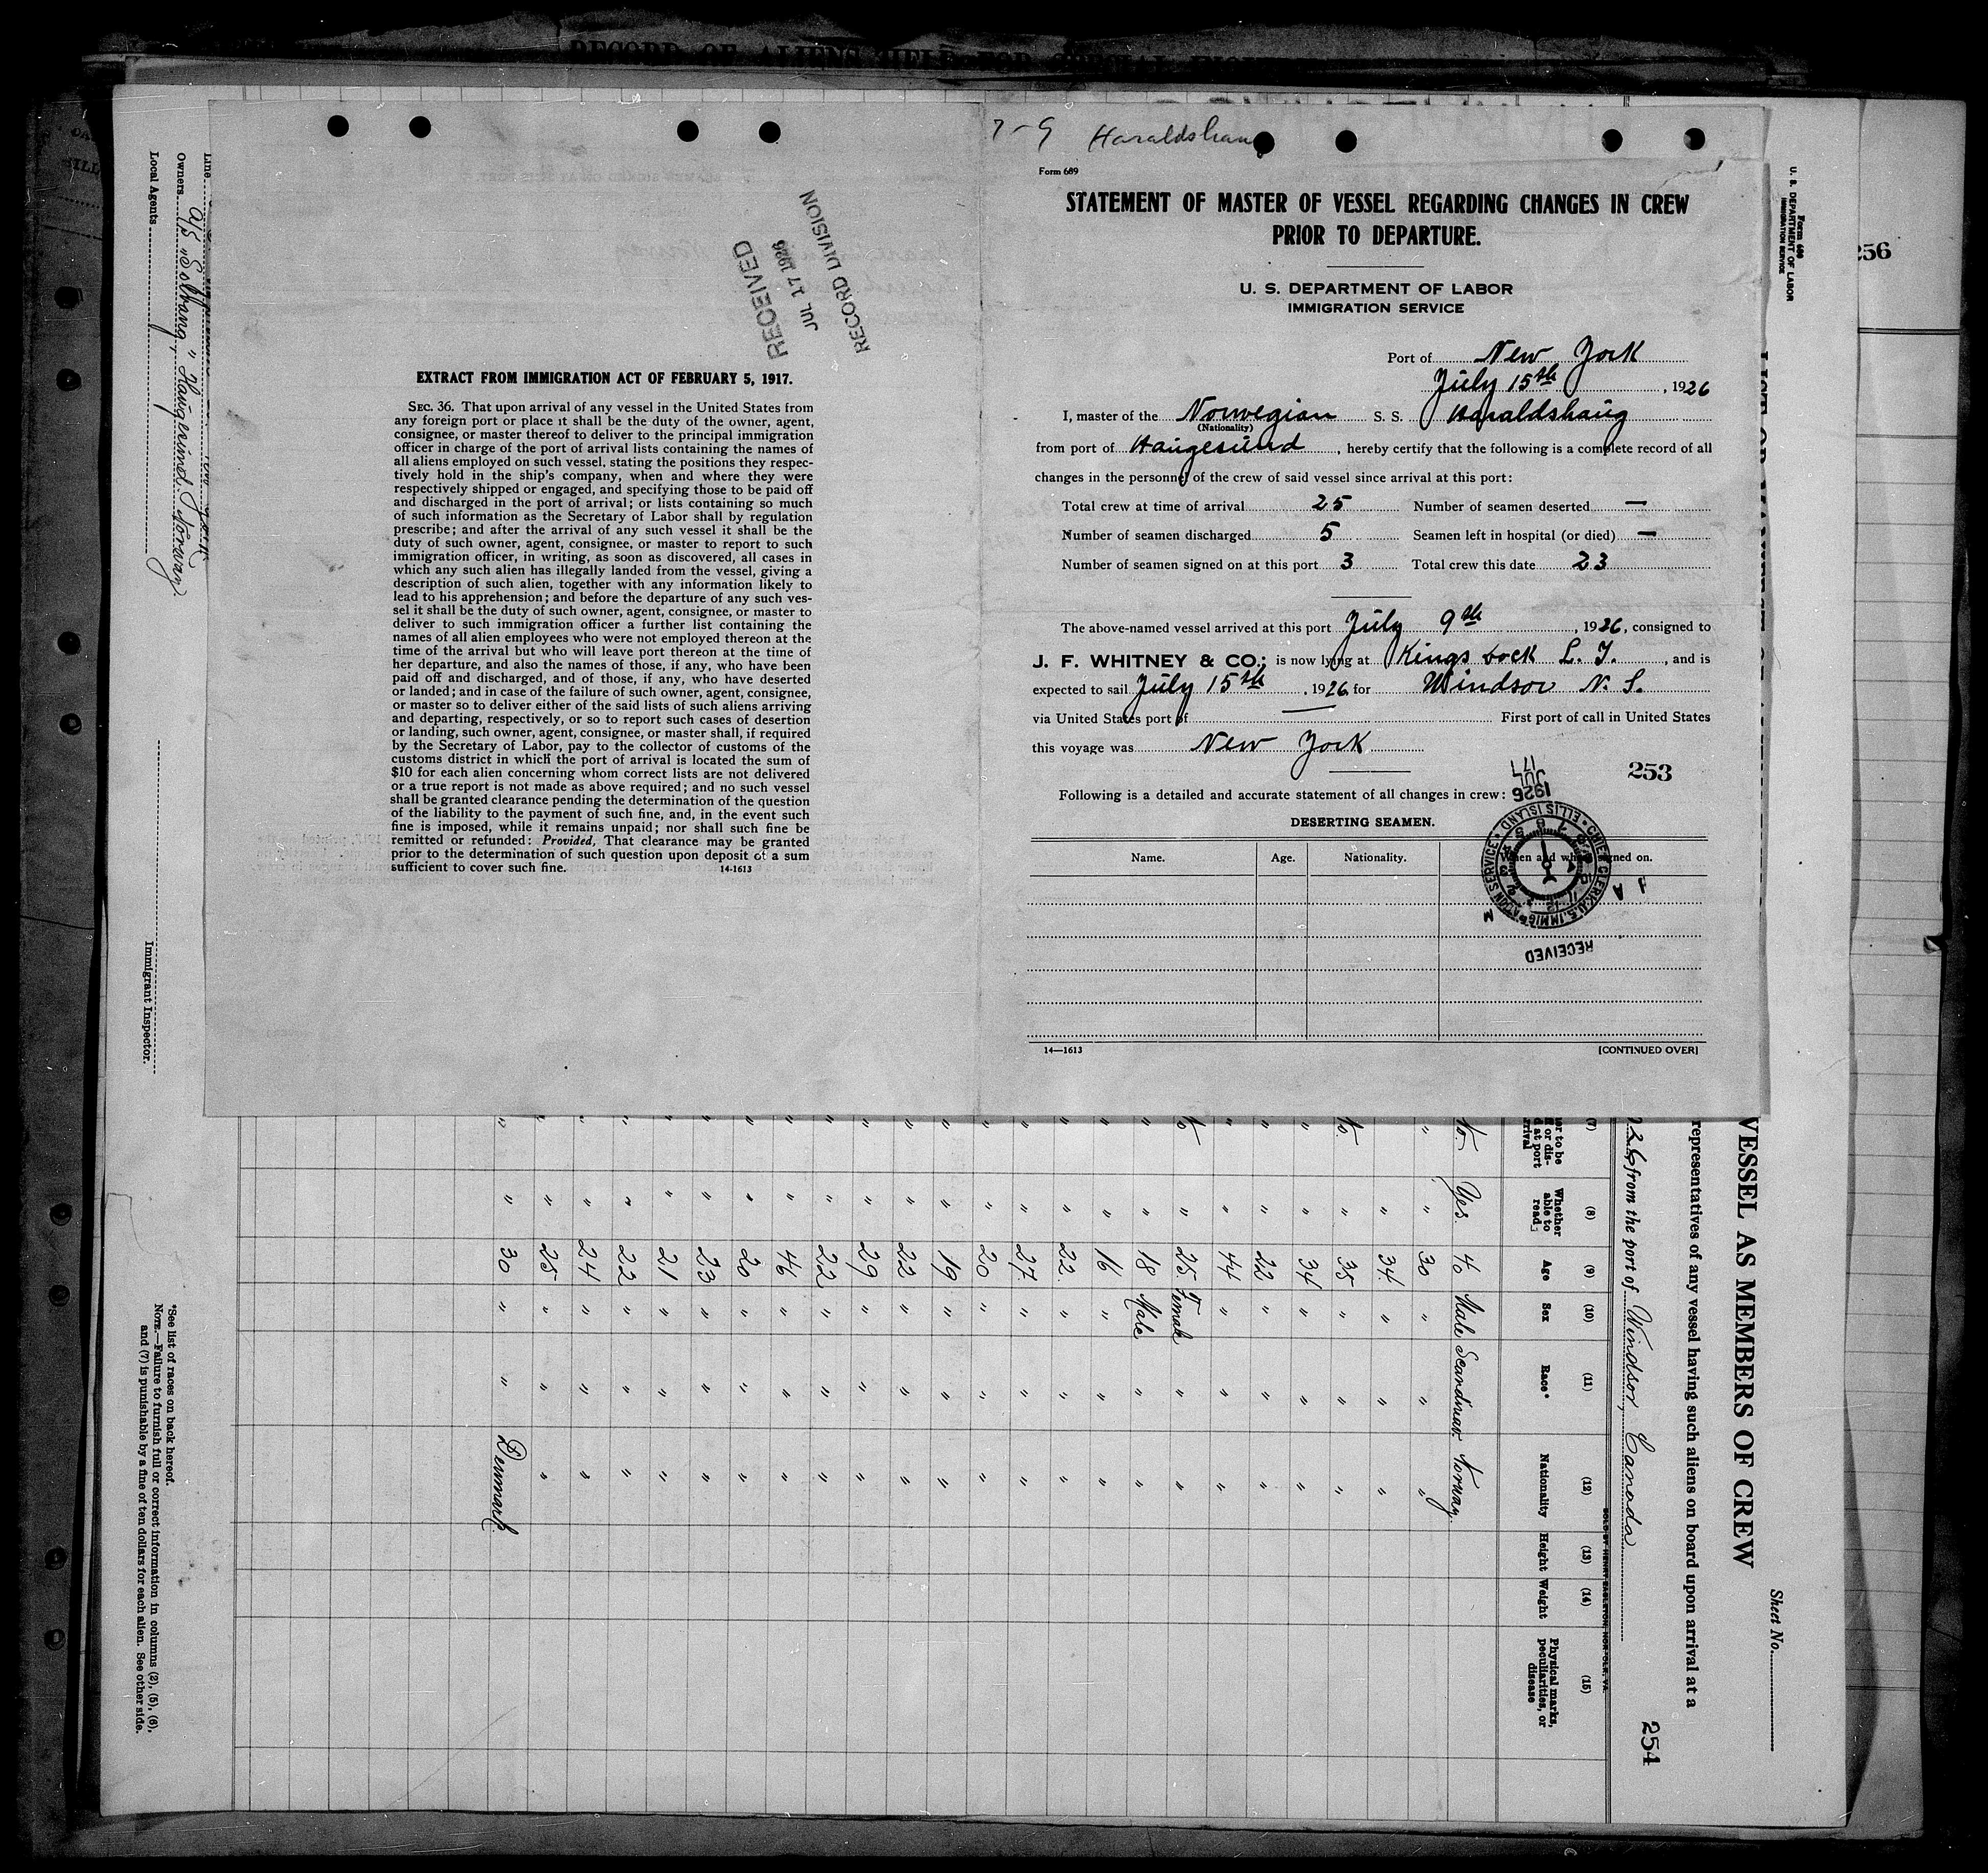 RECORD OF ALIENS HELD FOR SPECIAL
7-9 Haraldshaug
Form 689
STATEMENT OF MASTER OF VESSEL REGARDING CHANGES IN CREW
PRIOR TO DEPARTURE.
U. S. DEPARTMENT OF LABOR
IMMIGRATION SERVICE
Port of New York
July 15th, 1926
I, master of the Norwegian S. S. Haraldshaug
(Nationality)
from port of Haugesund, hereby certify that the following is a complete record of all
changes in the personnel of the crew of said vessel since arrival at this port:
Total crew at time of arrival 25 Number of seamen deserted —
Number of seamen discharged 5 Seamen left in hospital (or died) —
Number of seamen signed on at this port 3 Total crew this date 23
The above-named vessel arrived at this port July 9th, 1926, consigned to
J. F. WHITNEY & CO.; is now lying at Kings Dock L. I., and is
expected to sail July 15th, 1926 for Windsor N. S.
via United States port of — First port of call in United States
this voyage was New York
253
Following is a detailed and accurate statement of all changes in crew:
DESERTING SEAMEN.
Name. Age. Nationality. When and where signed on.
14—1613 [CONTINUED OVER]
1926
JUL 17
CHIEF CLERK, U.S. IMMIGRATION SERVICE ELLIS ISLAND
RECEIVED
RECEIVED
JUL 17 1926
RECORD DIVISION
EXTRACT FROM IMMIGRATION ACT OF FEBRUARY 5, 1917.
SEC. 36. That upon arrival of any vessel in the United States from
any foreign port or place it shall be the duty of the owner, agent,
consignee, or master thereof to deliver to the principal immigration
officer in charge of the port of arrival lists containing the names of
all aliens employed on such vessel, stating the positions they respec-
tively hold in the ship's company, when and where they were
respectively shipped or engaged, and specifying those to be paid off
and discharged in the port of arrival; or lists containing so much
of such information as the Secretary of Labor shall by regulation
prescribe; and after the arrival of any such vessel it shall be the
duty of such owner, agent, consignee, or master to report to such
immigration officer, in writing, as soon as discovered, all cases in
which any such alien has illegally landed from the vessel, giving a
description of such alien, together with any information likely to
lead to his apprehension; and before the departure of any such ves-
sel it shall be the duty of such owner, agent, consignee, or master to
deliver to such immigration officer a further list containing the
names of all alien employees who were not employed thereon at the
time of the arrival but who will leave port thereon at the time of
her departure, and also the names of those, if any, who have been
paid off and discharged, and of those, if any, who have deserted
or landed; and in case of the failure of such owner, agent, consignee,
or master so to deliver either of the said lists of such aliens arriving
and departing, respectively, or so to report such cases of desertion
or landing, such owner, agent, consignee, or master shall, if required
by the Secretary of Labor, pay to the collector of customs of the
customs district in which the port of arrival is located the sum of
$10 for each alien concerning whom correct lists are not delivered
or a true report is not made as above required; and no such vessel
shall be granted clearance pending the determination of the question
of the liability to the payment of such fine, and, in the event such
fine is imposed, while it remains unpaid; nor shall such fine be
remitted or refunded: Provided, That clearance may be granted
prior to the determination of such question upon deposit of a sum
sufficient to cover such fine.
14-1613
256
U. S. DEPARTMENT OF LABOR
IMMIGRATION SERVICE
Sheet No.
254
VESSEL AS MEMBERS OF CREW
representatives of any vessel having such aliens on board upon arrival at a
from the port of Windsor, Canada
(7) (8) (9) (10) (11) (12) (13) (14) (15)
Whether able to read Age Sex Race* Nationality Height Weight Physical marks, peculiarities, or disease
No. Yes. 40 Male Scandinav. Norway.
" " 30 " " "
" 34 " " "
No. " 35 " " "
" " 34 " " "
" " 22 " " "
" " 44 " " "
No " 25. Female " "
" " 18 Male " "
" " 16 " " "
" " 22. " " "
" " 27. " " "
" " 20 " " "
" " 19 " " "
" " 22 " " "
" " 29 " " "
" " 22 " " "
" " 46 " " "
" " 20 " " "
" " 23 " " "
" " 21 " " "
" " 22 " " "
" " 24 " " "
" " 25 " " "
" " 30 " " Denmark.
Line
Owners A/S "Solhaug", Haugesund. Norway.
Local Agents
Immigrant Inspector.
*See list of races on back hereof.
NOTE.—Failure to furnish full or correct information in columns (2), (5), (6),
and (7) is punishable by a fine of ten dollars for each alien. See other side.